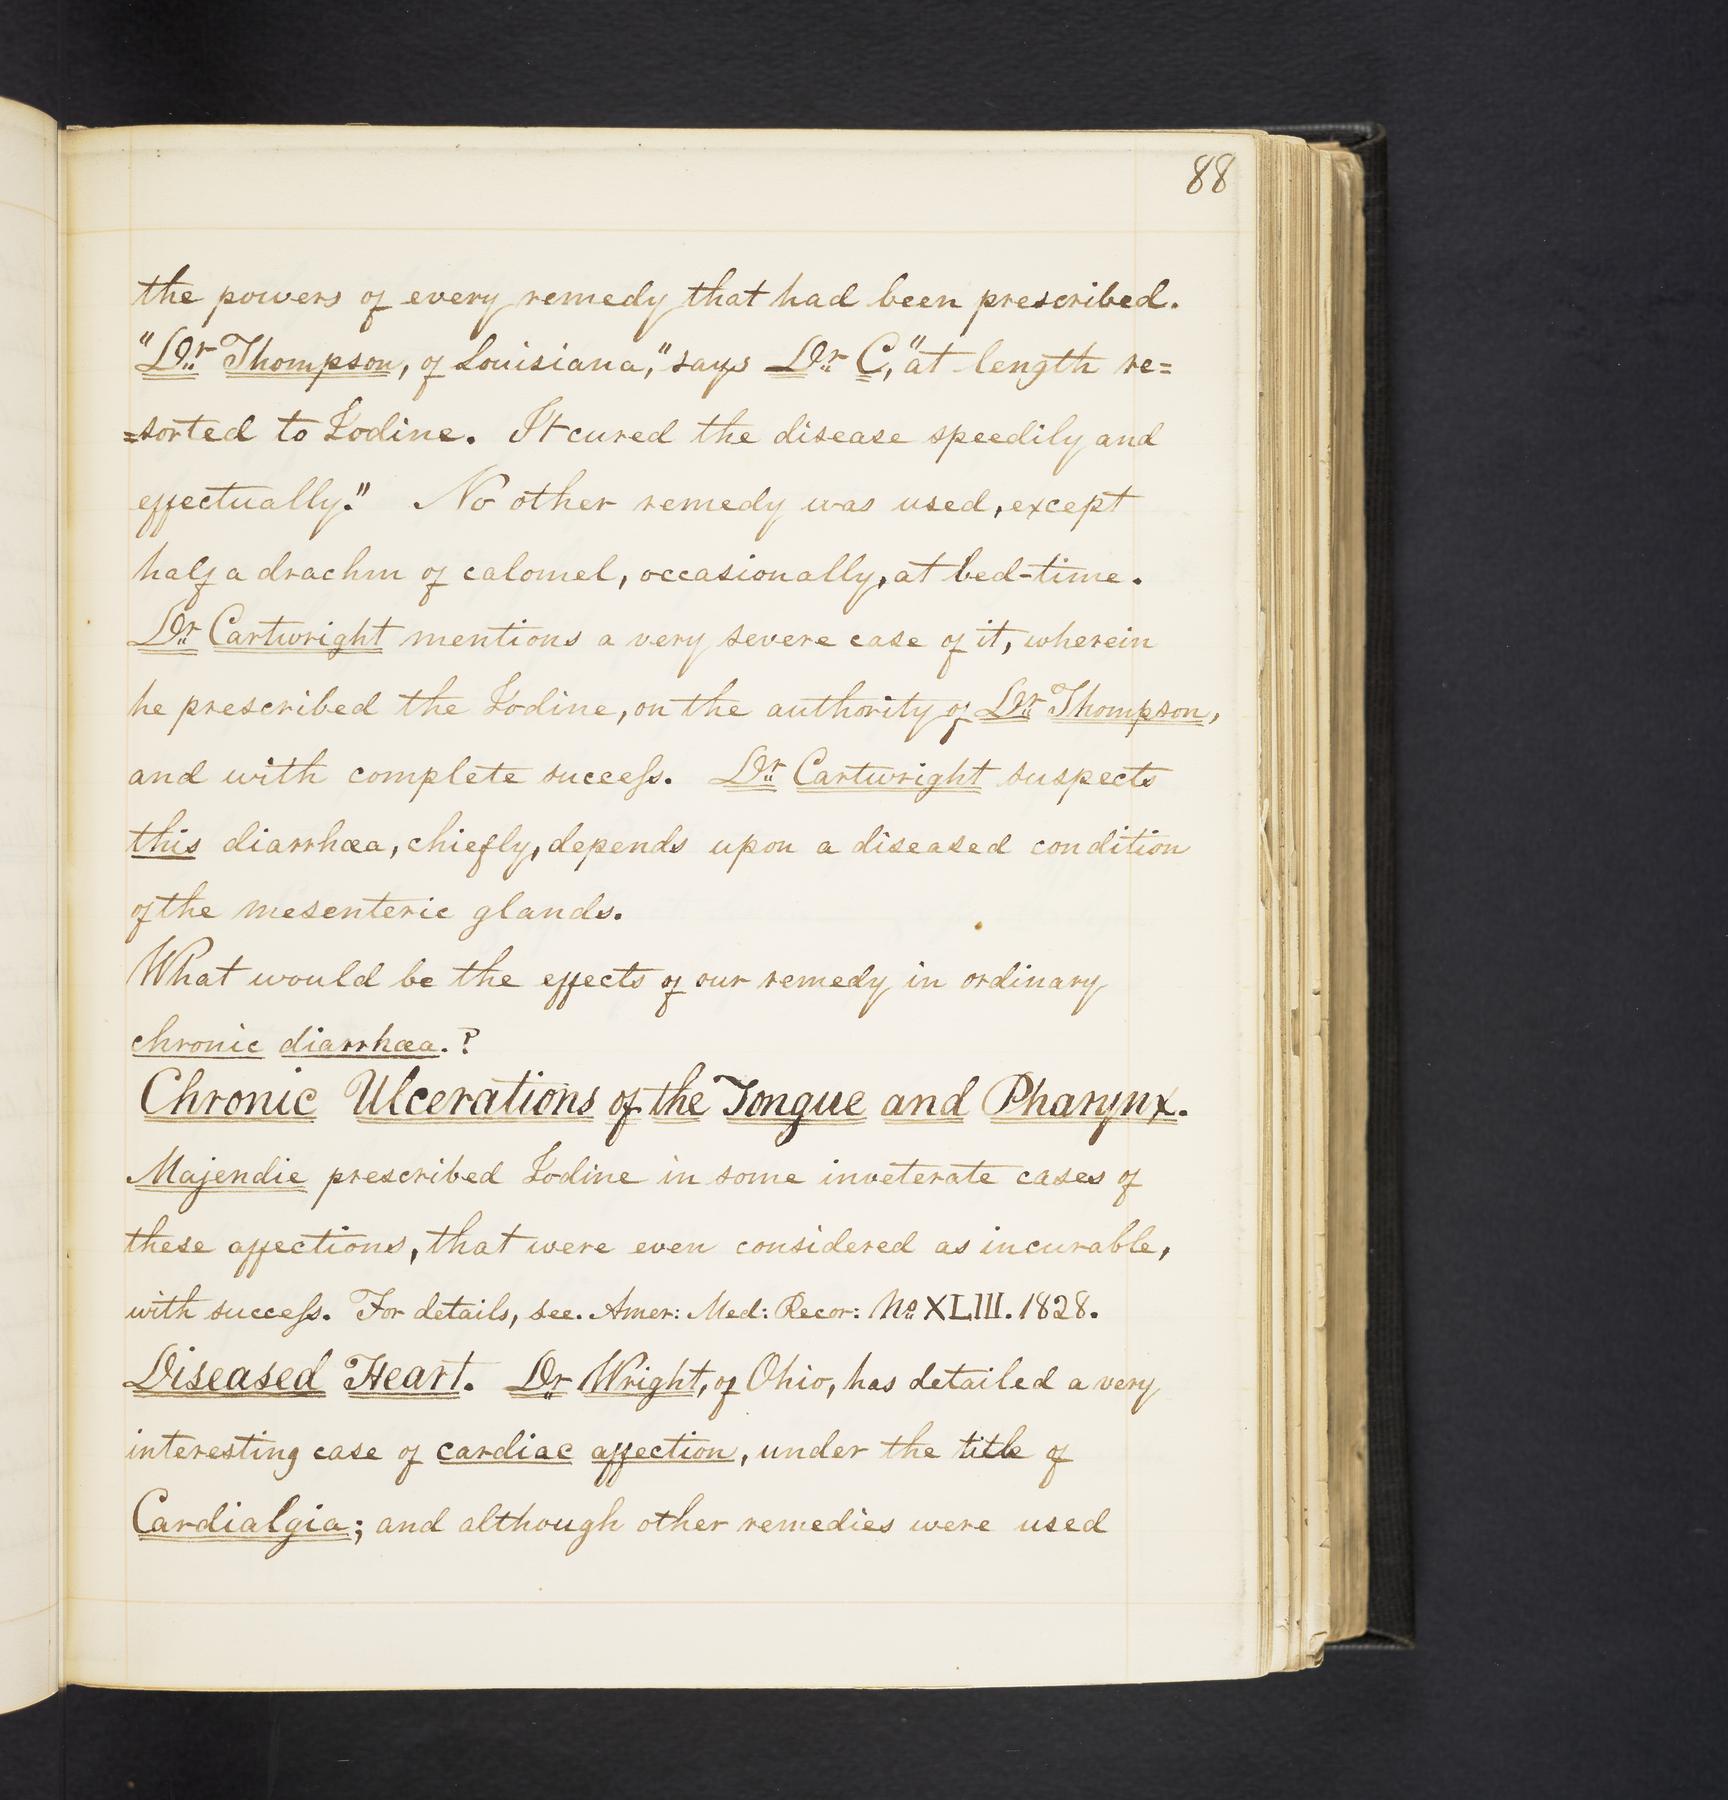 88
the powers of every remedy that had been prescribed.
"Dr Thompson, of Louisiana," says Dr C, "at length re=
=sorted to Iodine. It cured the disease speedily and
effectually." No other remedy was used, except
half a drachm of calomel, occasionally, at bed-time.
Dr Cartwright mentions a very severe case of it, wherein
he prescribed the Iodine, on the authority of Dr Thompson,
and with complete succeſs. Dr Cartwright suspects
this diarrhœa, chiefly, depends upon a diseased condition
of the mesenteric glands.
What would be the effects of our remedy in ordinary
chronic diarrhœa.?
Chronic Ulcerations of the Tongue and Pharynx.
Majendie prescribed Iodine in some inveterate cases of
these affections, that were even considered as incurable,
with succeſs. For details, see. Amer: Med: Recor: No XLIII. 1828.
Diseased Heart. Dr Wright, of Ohio, has detailed a very
interesting case of cardiac affection, under the title of
Cardialgia; and although other remedies were used